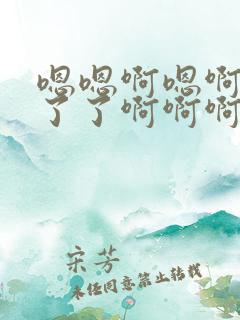 嗯嗯啊嗯啊
了了啊啊啊
宋芳
未经同意禁止转载